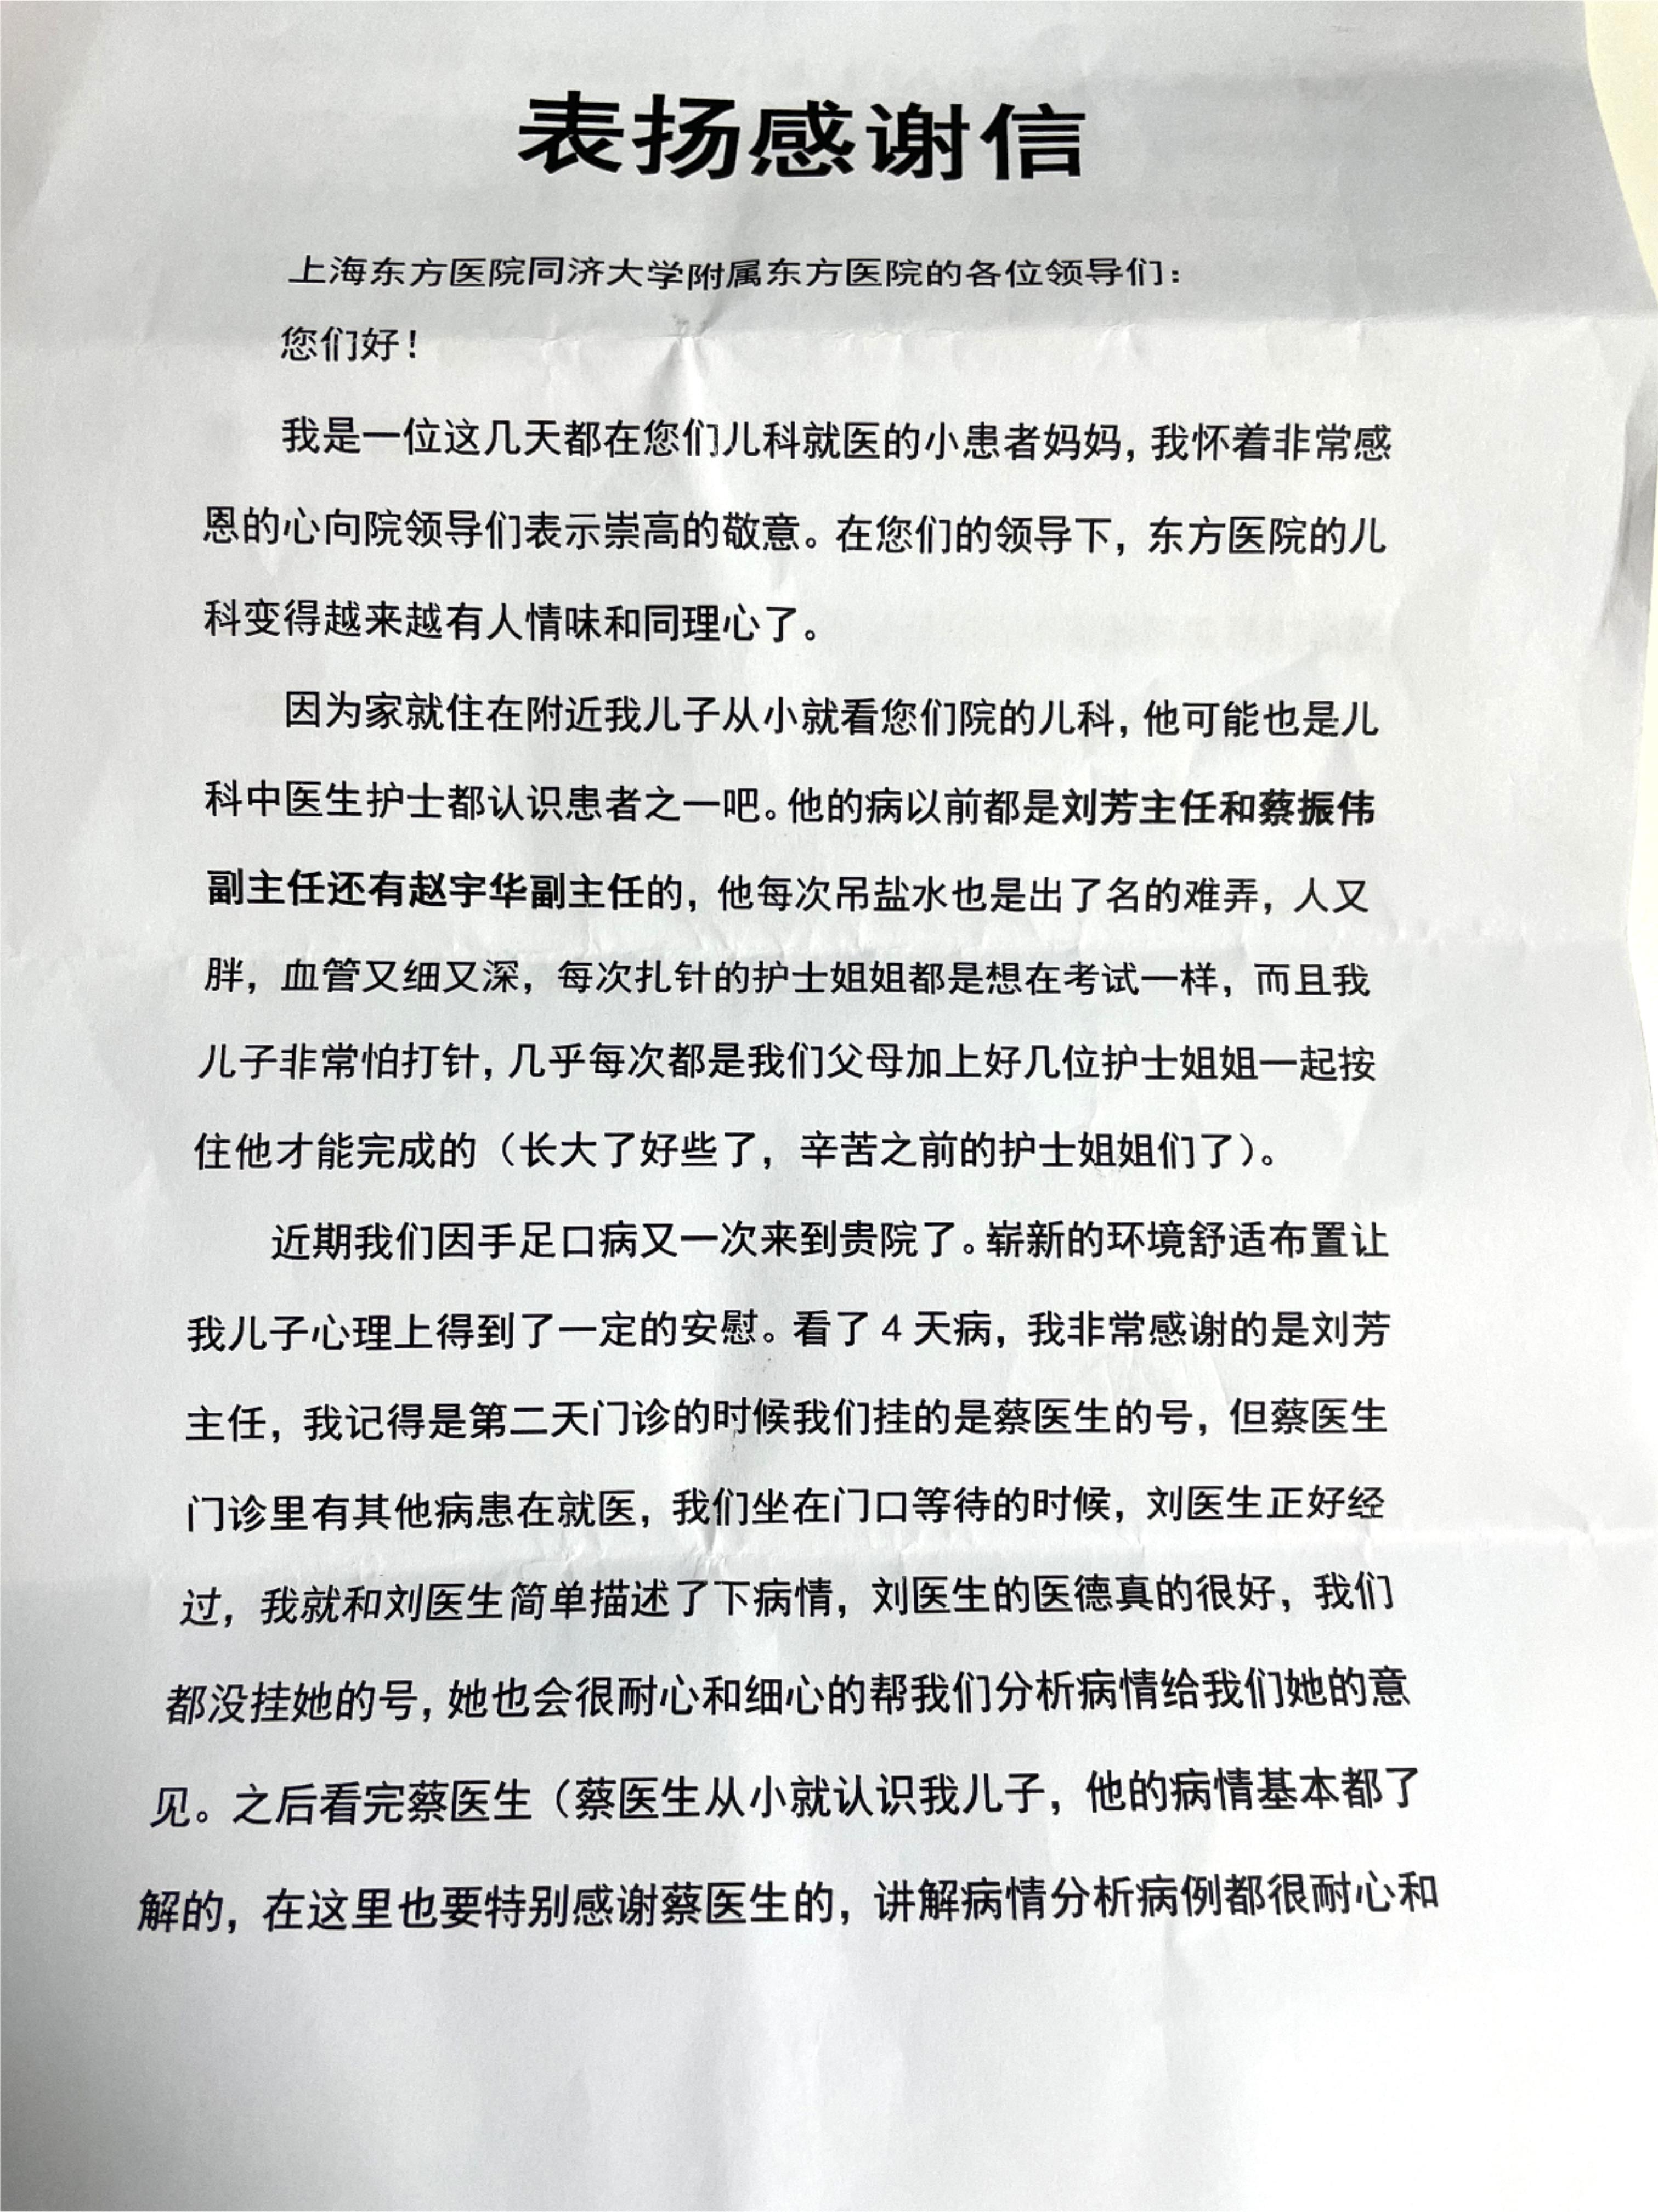 表扬感谢信
上海东方医院同济大学附属东方医院的各位领导们：
您们好！
我是一位这几天都在您们儿科就医的小患者妈妈，我怀着非常感
恩的心向院领导们表示崇高的敬意。在您们的领导下，东方医院的儿
科变得越来越有人情味和同理心了。
因为家就住在附近我儿子从小就看您们院的儿科，他可能也是儿
科中医生护士都认识患者之一吧。他的病以前都是刘芳主任和蔡振伟
副主任还有赵宇华副主任的，他每次吊盐水也是出了名的难弄，人又
胖，血管又细又深，每次扎针的护士姐姐都是想在考试一样，而且我
儿子非常怕打针，几乎每次都是我们父母加上好几位护士姐姐一起按
住他才能完成的（长大了好些了，辛苦之前的护士姐姐们了）。
近期我们因手足口病又一次来到贵院了。崭新的环境舒适布置让
我儿子心理上得到了一定的安慰。看了4天病，我非常感谢的是刘芳
主任，我记得是第二天门诊的时候我们挂的是蔡医生的号，但蔡医生
门诊里有其他病患在就医，我们坐在门口等待的时候，刘医生正好经
过，我就和刘医生简单描述了下病情，刘医生的医德真的很好，我们
都没挂她的号，她也会很耐心和细心的帮我们分析病情给我们她的意
见。之后看完蔡医生（蔡医生从小就认识我儿子，他的病情基本都了
解的，在这里也要特别感谢蔡医生的，讲解病情分析病例都很耐心和